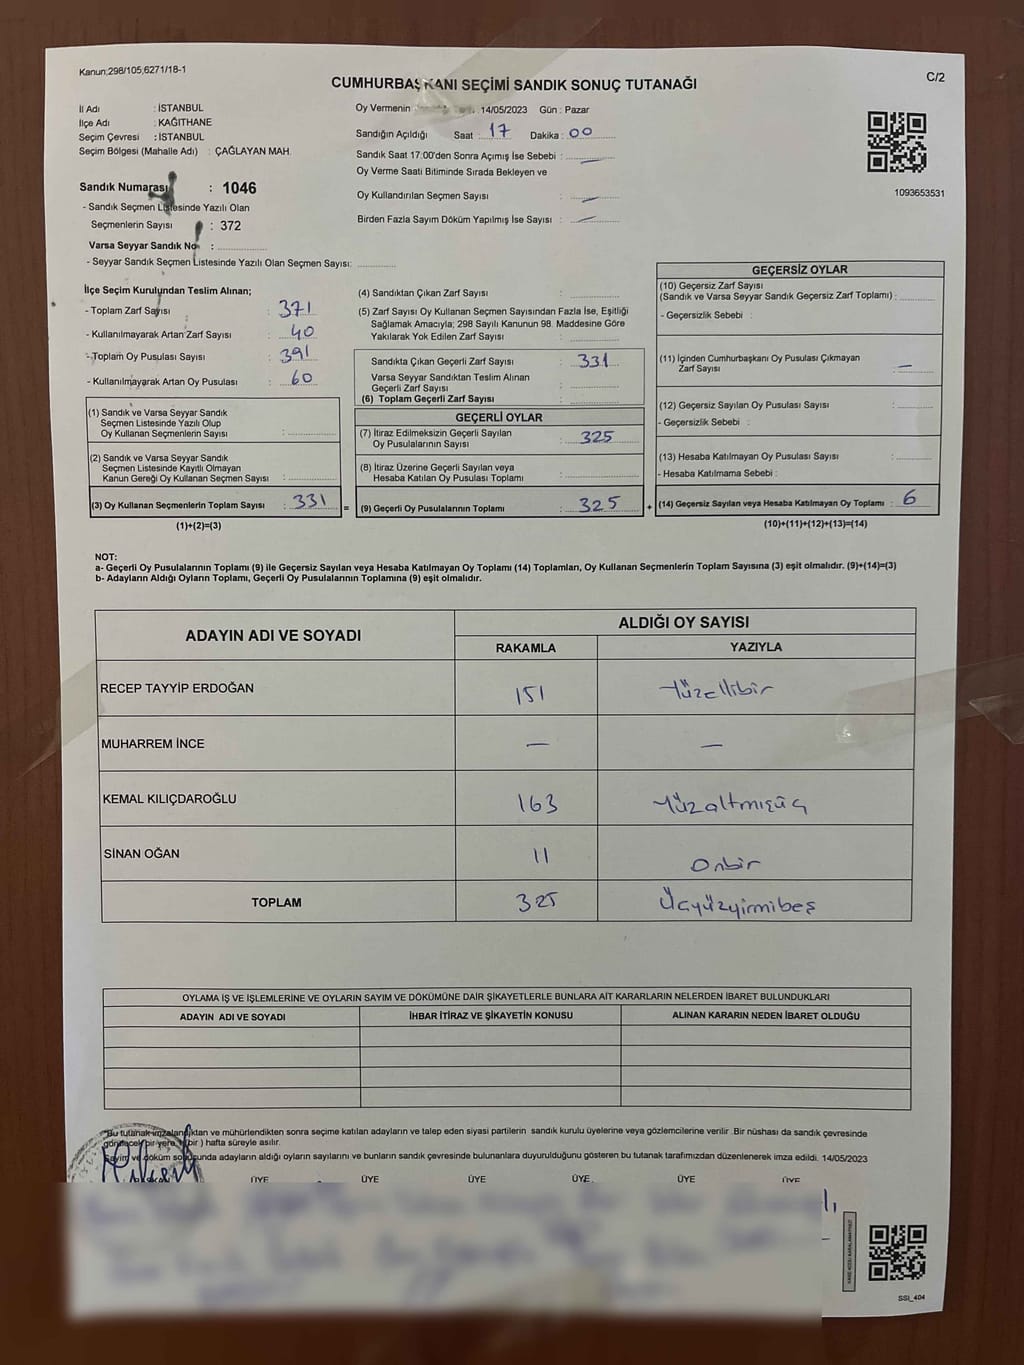 Kanun;298/105,6271/18-1
C/2
CUMHURBAŞKANI SEÇİMİ SANDIK SONUÇ TUTANAĞI
İl Adı : İSTANBUL
İlçe Adı : KAĞITHANE
Seçim Çevresi : İSTANBUL
Seçim Bölgesi (Mahalle Adı) : ÇAĞLAYAN MAH.
Oy Vermenin 14/05/2023 Gün : Pazar
Sandığın Açıldığı Saat : 17 Dakika : 00
Sandık Saat 17:00'den Sonra Açımış İse Sebebi : —
Oy Verme Saati Bitiminde Sırada Bekleyen ve
Oy Kullandırılan Seçmen Sayısı : —
Birden Fazla Sayım Döküm Yapılmış İse Sayısı : —
1093653531
Sandık Numarası : 1046
- Sandık Seçmen Listesinde Yazılı Olan
Seçmenlerin Sayısı : 372
Varsa Seyyar Sandık No :
- Seyyar Sandık Seçmen Listesinde Yazılı Olan Seçmen Sayısı:
İlçe Seçim Kurulundan Teslim Alınan;
- Toplam Zarf Sayısı : 371
- Kullanılmayarak Artan Zarf Sayısı : 40
- Toplam Oy Pusulası Sayısı : 391
- Kullanılmayarak Artan Oy Pusulası : 60
(1) Sandık ve Varsa Seyyar Sandık
Seçmen Listesinde Yazılı Olup
Oy Kullanan Seçmenlerin Sayısı :
(2) Sandık ve Varsa Seyyar Sandık
Seçmen Listesinde Kayıtlı Olmayan
Kanun Gereği Oy Kullanan Seçmen Sayısı :
(3) Oy Kullanan Seçmenlerin Toplam Sayısı : 331 =
(1)+(2)=(3)
(4) Sandıktan Çıkan Zarf Sayısı :
(5) Zarf Sayısı Oy Kullanan Seçmen Sayısından Fazla İse, Eşitliği
Sağlamak Amacıyla; 298 Sayılı Kanunun 98. Maddesine Göre
Yakılarak Yok Edilen Zarf Sayısı :
Sandıkta Çıkan Geçerli Zarf Sayısı : 331
Varsa Seyyar Sandıktan Teslim Alınan
Geçerli Zarf Sayısı :
(6) Toplam Geçerli Zarf Sayısı :
GEÇERLİ OYLAR
(7) İtiraz Edilmeksizin Geçerli Sayılan
Oy Pusulalarının Sayısı : 325
(8) İtiraz Üzerine Geçerli Sayılan veya
Hesaba Katılan Oy Pusulası Toplamı :
(9) Geçerli Oy Pusulalarının Toplamı : 325 +
GEÇERSİZ OYLAR
(10) Geçersiz Zarf Sayısı
(Sandık ve Varsa Seyyar Sandık Geçersiz Zarf Toplamı) :
- Geçersizlik Sebebi :
(11) İçinden Cumhurbaşkanı Oy Pusulası Çıkmayan
Zarf Sayısı : —
(12) Geçersiz Sayılan Oy Pusulası Sayısı :
- Geçersizlik Sebebi :
(13) Hesaba Katılmayan Oy Pusulası Sayısı :
- Hesaba Katılmama Sebebi :
(14) Geçersiz Sayılan veya Hesaba Katılmayan Oy Toplamı : 6
(10)+(11)+(12)+(13)=(14)
NOT:
a- Geçerli Oy Pusulalarının Toplamı (9) ile Geçersiz Sayılan veya Hesaba Katılmayan Oy Toplamı (14) Toplamları, Oy Kullanan Seçmenlerin Toplam Sayısına (3) eşit olmalıdır. (9)+(14)=(3)
b- Adayların Aldığı Oyların Toplamı, Geçerli Oy Pusulalarının Toplamına (9) eşit olmalıdır.
ADAYIN ADI VE SOYADI
ALDIĞI OY SAYISI
RAKAMLA YAZIYLA
RECEP TAYYİP ERDOĞAN 151 Yüzellibir
MUHARREM İNCE — —
KEMAL KILIÇDAROĞLU 163 Yüzaltmışüç
SİNAN OĞAN 11 Onbir
TOPLAM 325 Üçyüzyirmibeş
OYLAMA İŞ VE İŞLEMLERİNE VE OYLARIN SAYIM VE DÖKÜMÜNE DAİR ŞİKAYETLERLE BUNLARA AİT KARARLARIN NELERDEN İBARET BULUNDUKLARI
ADAYIN ADI VE SOYADI İHBAR İTİRAZ VE ŞİKAYETİN KONUSU ALINAN KARARIN NEDEN İBARET OLDUĞU
Bu tutanak imzalandıktan ve mühürlendikten sonra seçime katılan adayların ve talep eden siyasi partilerin sandık kurulu üyelerine veya gözlemcilerine verilir. Bir nüshası da sandık çevresinde
görülecek bir yere 1 (bir) hafta süreyle asılır.
Sayım ve döküm sonucunda adayların aldığı oyların sayılarını ve bunların sandık çevresinde bulunanlara duyurulduğunu gösteren bu tutanak tarafımızdan düzenlenerek imza edildi. 14/05/2023
ÜYE ÜYE ÜYE ÜYE ÜYE ÜYE
SSİ_404